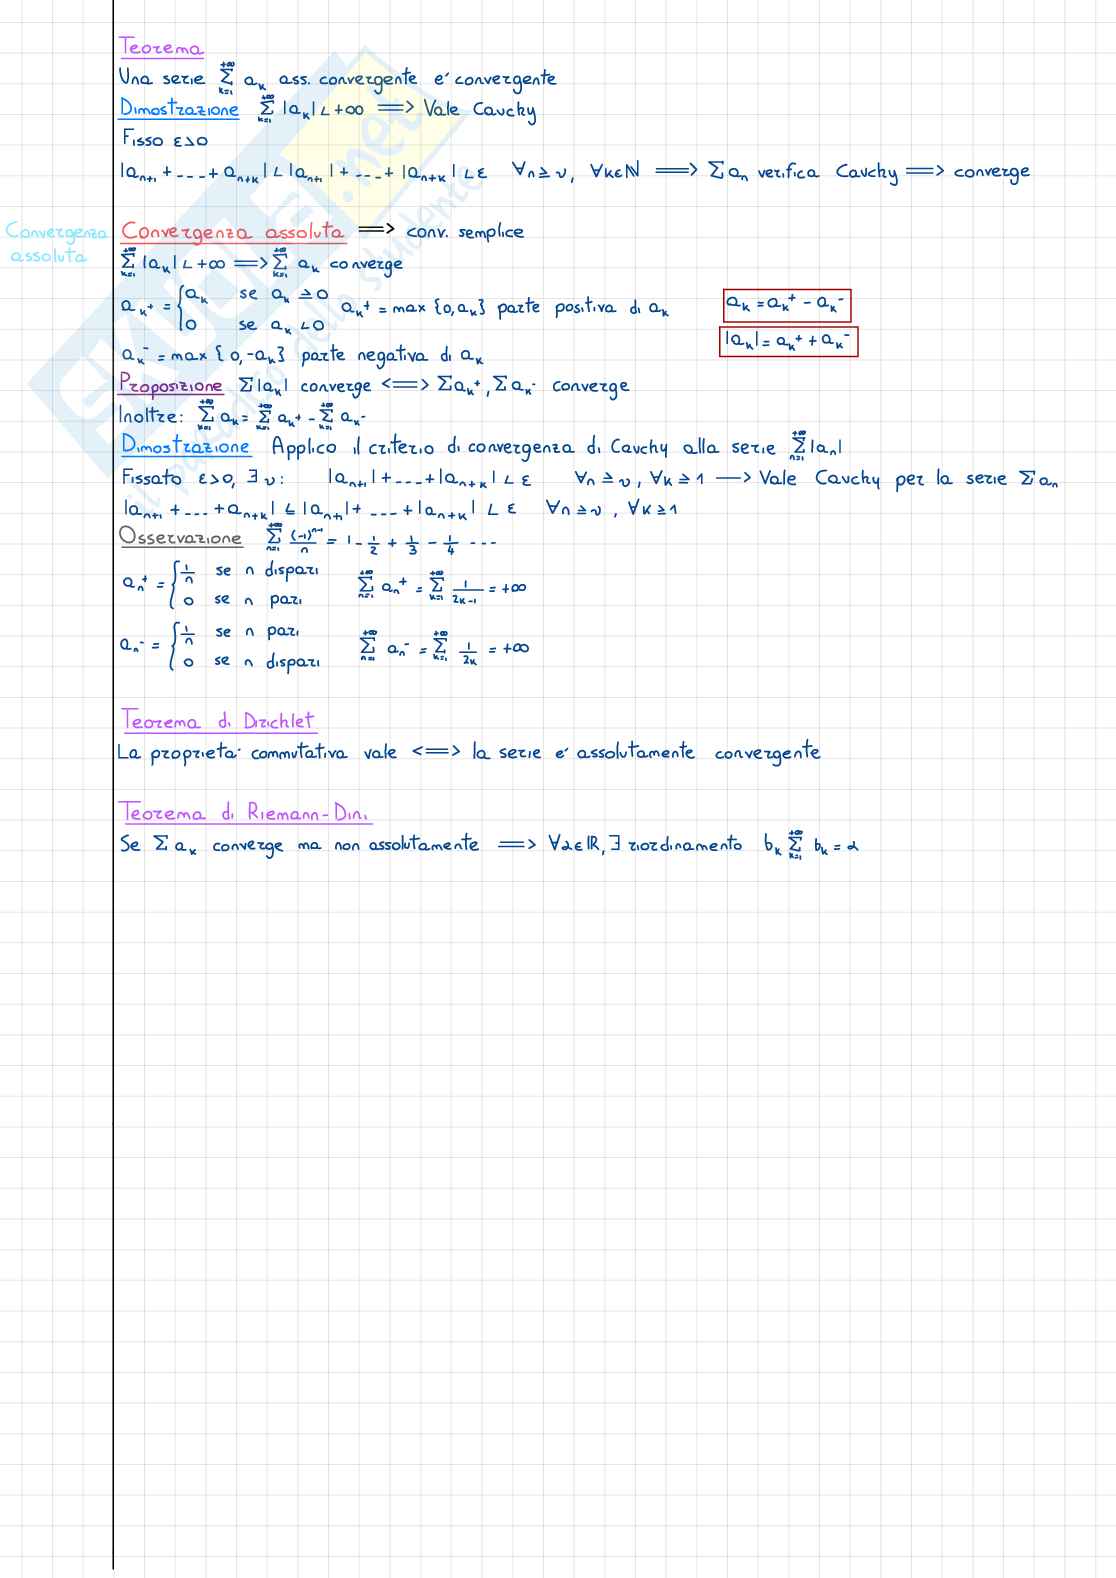 Teorema
Una serie $\sum_{k=1}^{+\infty} a_k$ ass. convergente e' convergente
Dimostrazione $\sum_{k=1}^{+\infty} |a_k| < +\infty \Longrightarrow$ Vale Cauchy
Fisso ε>0
$|a_{n+1} + --- + a_{n+k}| < |a_{n+1}| + --- + |a_{n+k}| < ε \quad ∀n ≥ ν, ∀k∈ℕ \Longrightarrow \sum a_n$ verifica Cauchy $\Longrightarrow$ converge
Convergenza assoluta
Convergenza assoluta $\Longrightarrow$ conv. semplice
$\sum_{k=1}^{+\infty} |a_k| < +\infty \Longrightarrow \sum_{k=1}^{+\infty} a_k$ converge
$a_k^+ = \begin{cases} a_k & \text{se } a_k ≥ 0 \\ 0 & \text{se } a_k < 0 \end{cases}$ $a_k^+ = \max\{0, a_k\}$ parte positiva di $a_k$
$a_k = a_k^+ - a_k^-$
$|a_k| = a_k^+ + a_k^-$
$a_k^- = \max\{0, -a_k\}$ parte negativa di $a_k$
Proposizione $\sum |a_k|$ converge $\Longleftrightarrow \sum a_k^+, \sum a_k^-$ converge
Inoltre: $\sum_{k=1}^{+\infty} a_k = \sum_{k=1}^{+\infty} a_k^+ - \sum_{k=1}^{+\infty} a_k^-$
Dimostrazione Applico il criterio di convergenza di Cauchy alla serie $\sum_{n=1}^{+\infty} |a_n|$
Fissato ε>0, ∃ν: $|a_{n+1}| + --- + |a_{n+k}| < ε \quad ∀n ≥ ν, ∀k ≥ 1 \longrightarrow$ Vale Cauchy per la serie $\sum a_n$
$|a_{n+1} + --- + a_{n+k}| ≤ |a_{n+1}| + --- + |a_{n+k}| < ε \quad ∀n ≥ ν, ∀k ≥ 1$
Osservazione $\sum_{n=1}^{+\infty} \frac{(-1)^{n-1}}{n} = 1 - \frac{1}{2} + \frac{1}{3} - \frac{1}{4} ---$
$a_n^+ = \begin{cases} \frac{1}{n} & \text{se n dispari} \\ 0 & \text{se n pari} \end{cases}$ $\sum_{n=1}^{+\infty} a_n^+ = \sum_{k=1}^{+\infty} \frac{1}{2k-1} = +\infty$
$a_n^- = \begin{cases} \frac{1}{n} & \text{se n pari} \\ 0 & \text{se n dispari} \end{cases}$ $\sum_{n=1}^{+\infty} a_n^- = \sum_{k=1}^{+\infty} \frac{1}{2k} = +\infty$
Teorema di Dirichlet
La proprieta' commutativa vale $\Longleftrightarrow$ la serie e' assolutamente convergente
Teorema di Riemann-Dini
Se $\sum a_k$ converge ma non assolutamente $\Longrightarrow ∀α∈ℝ, ∃$ riordinamento $b_k \sum_{k=1}^{+\infty} b_k = α$
SKUOLA.net
il paradiso dello studente